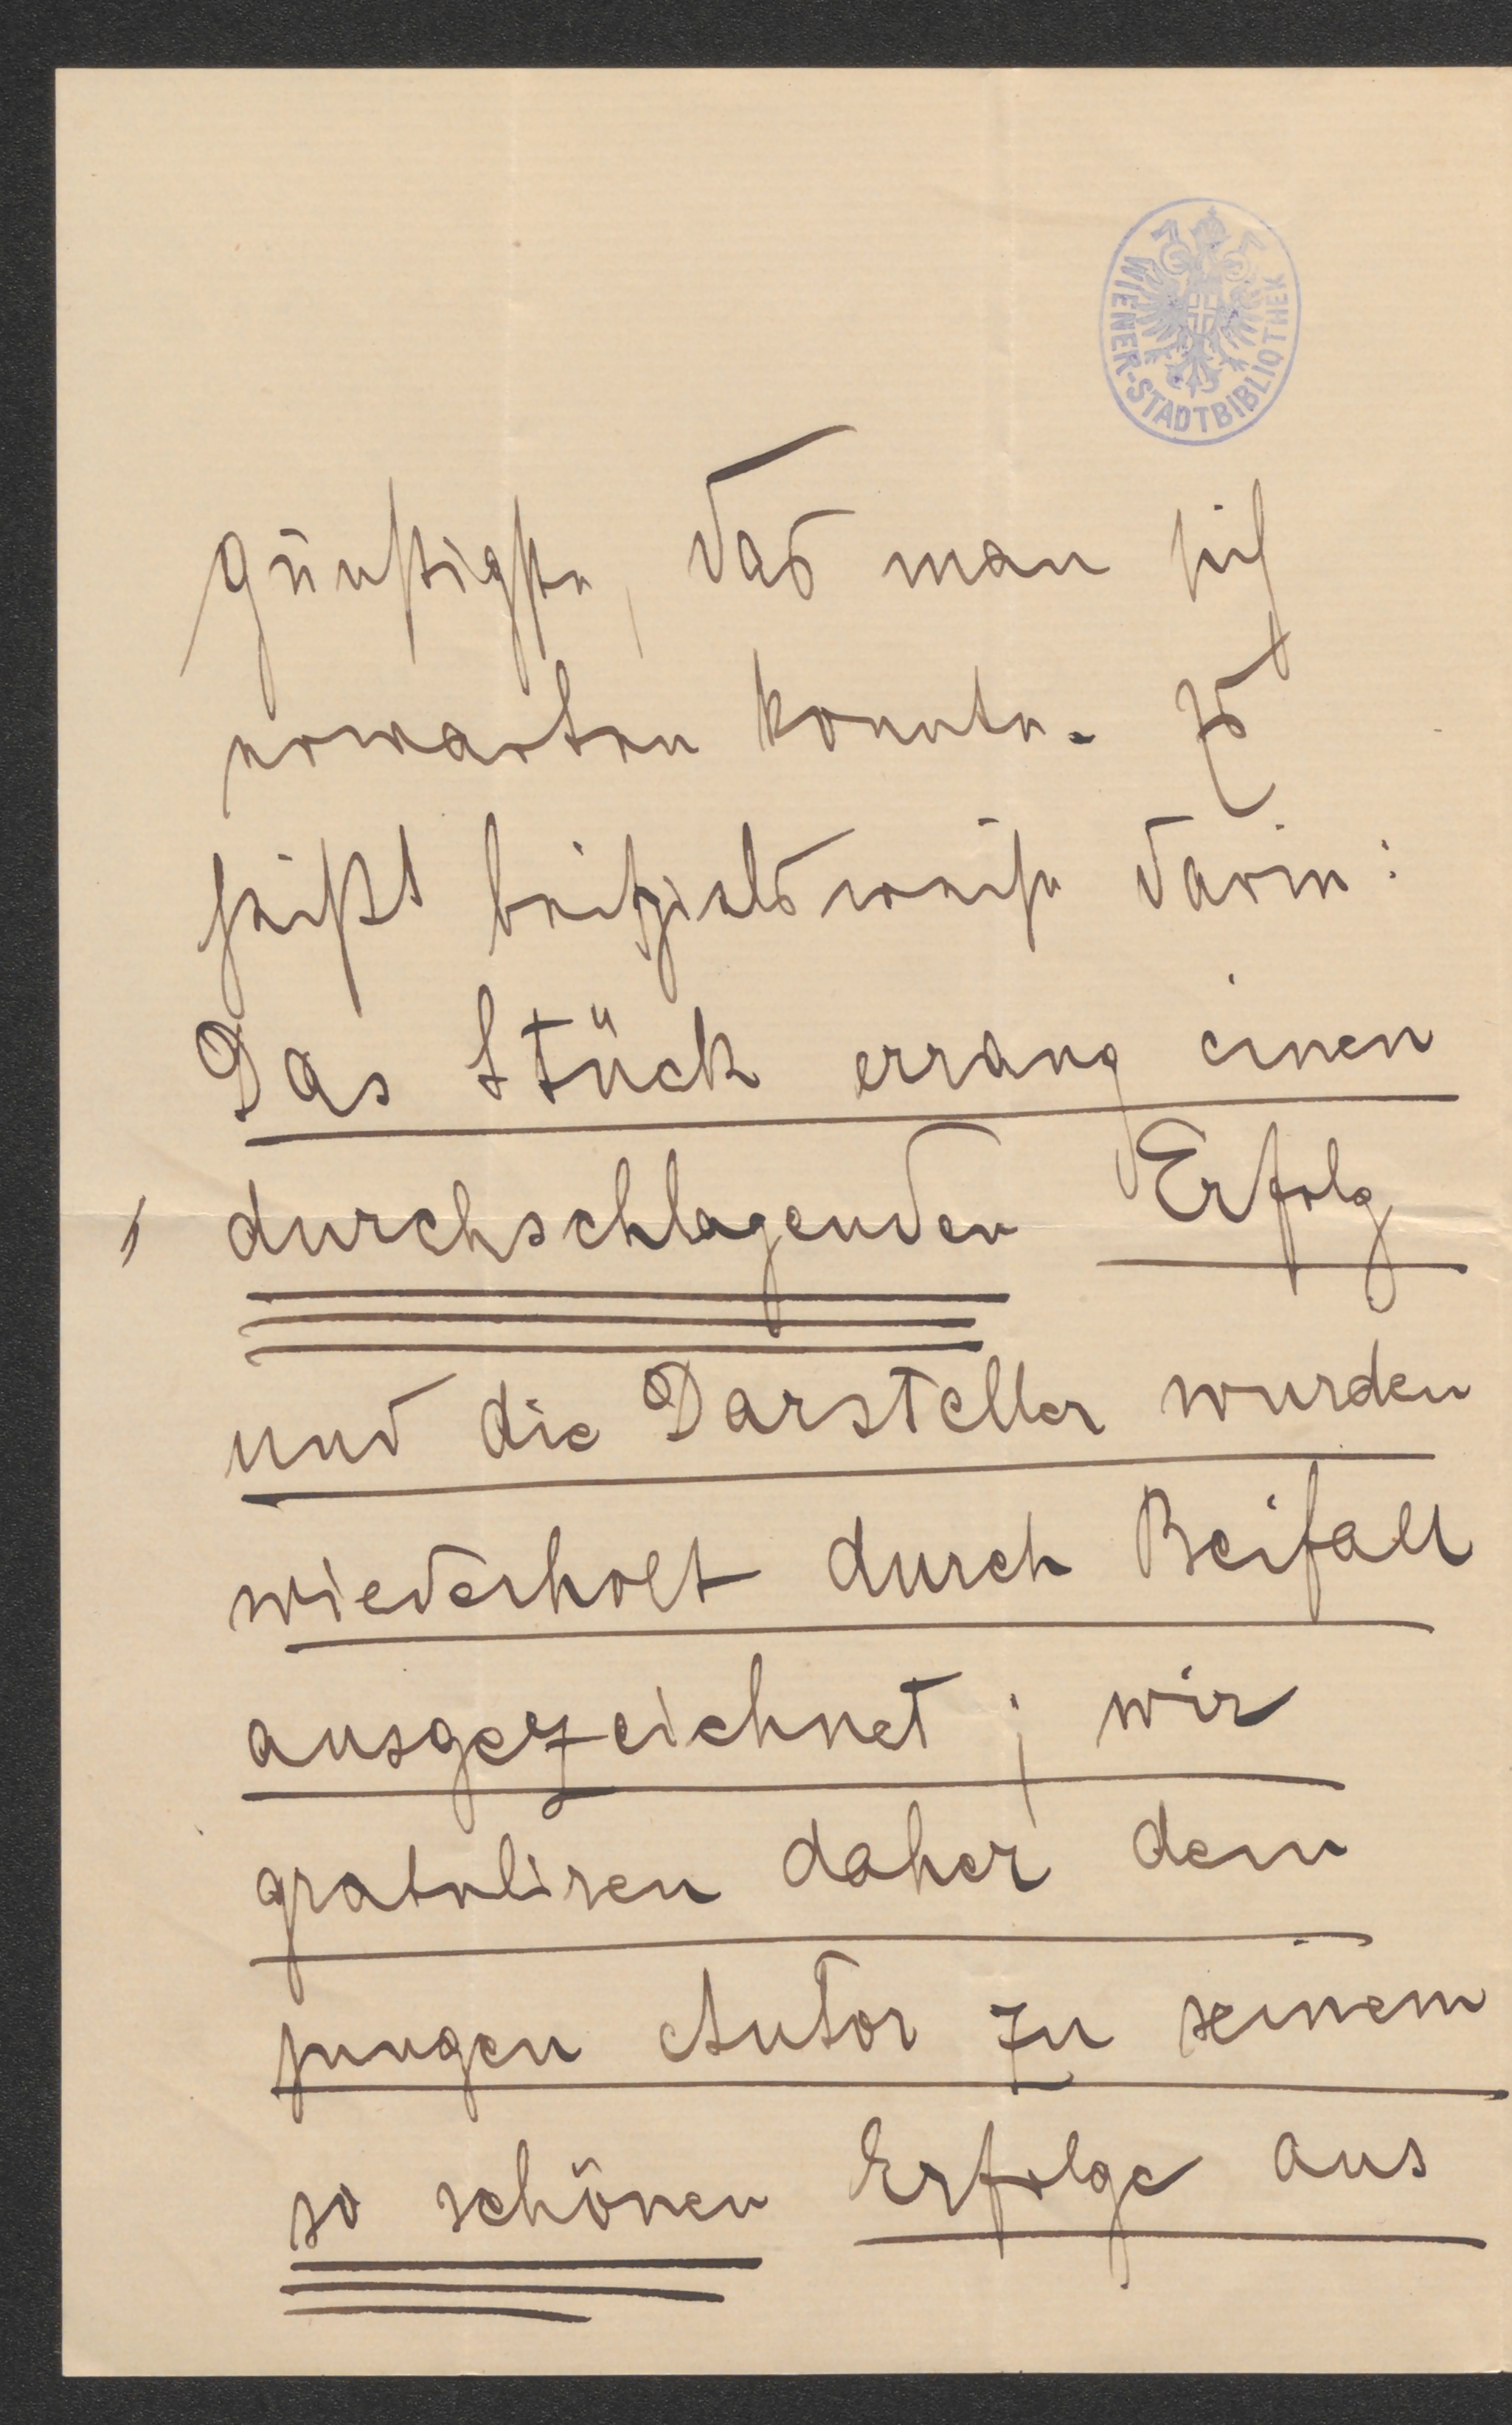 WIENER-STADTBIBLIOTHEK
günstigste, das man sich
erwarten konnte. Es
heißt beispielsweise darin:
Das Stück errang einen
durchschlagenden Erfolg
und die Darsteller wurden
wiederholt durch Beifall
ausgezeichnet; wir
gratuliren daher dem
jungen Autor zu seinem
so schönen Erfolge aus